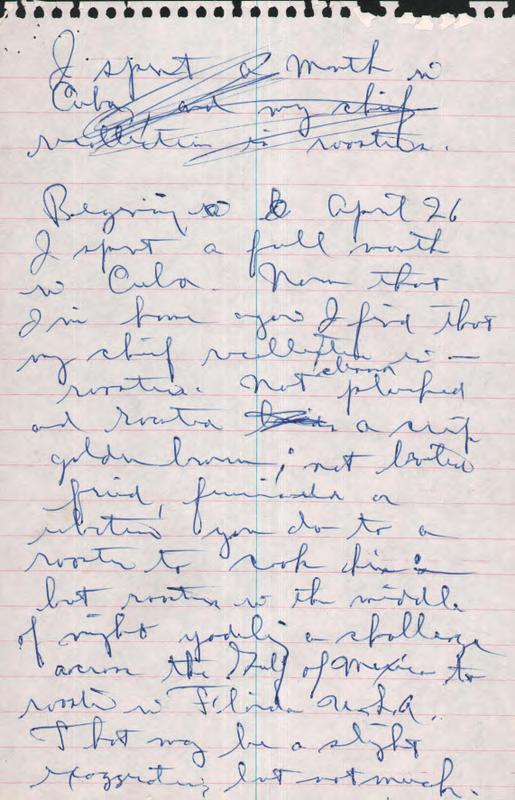 I spent a month in
Cuba and my chief
recollection is roosters.
Beginning April 26
I spent a full month
in Cuba. Now that
I'm home again I find that
my chief recollection is —
roosters. Not cleaned plucked
and roasted a crisp
golden brown; not broiled
fried, or
whatever you do to a
rooster to cook him —
but roosters in the middle
of night yodeling a challenge
across the Gulf of Mexico to
roosters in Florida U.S.A.
That may be a slight
exaggeration, but not much.